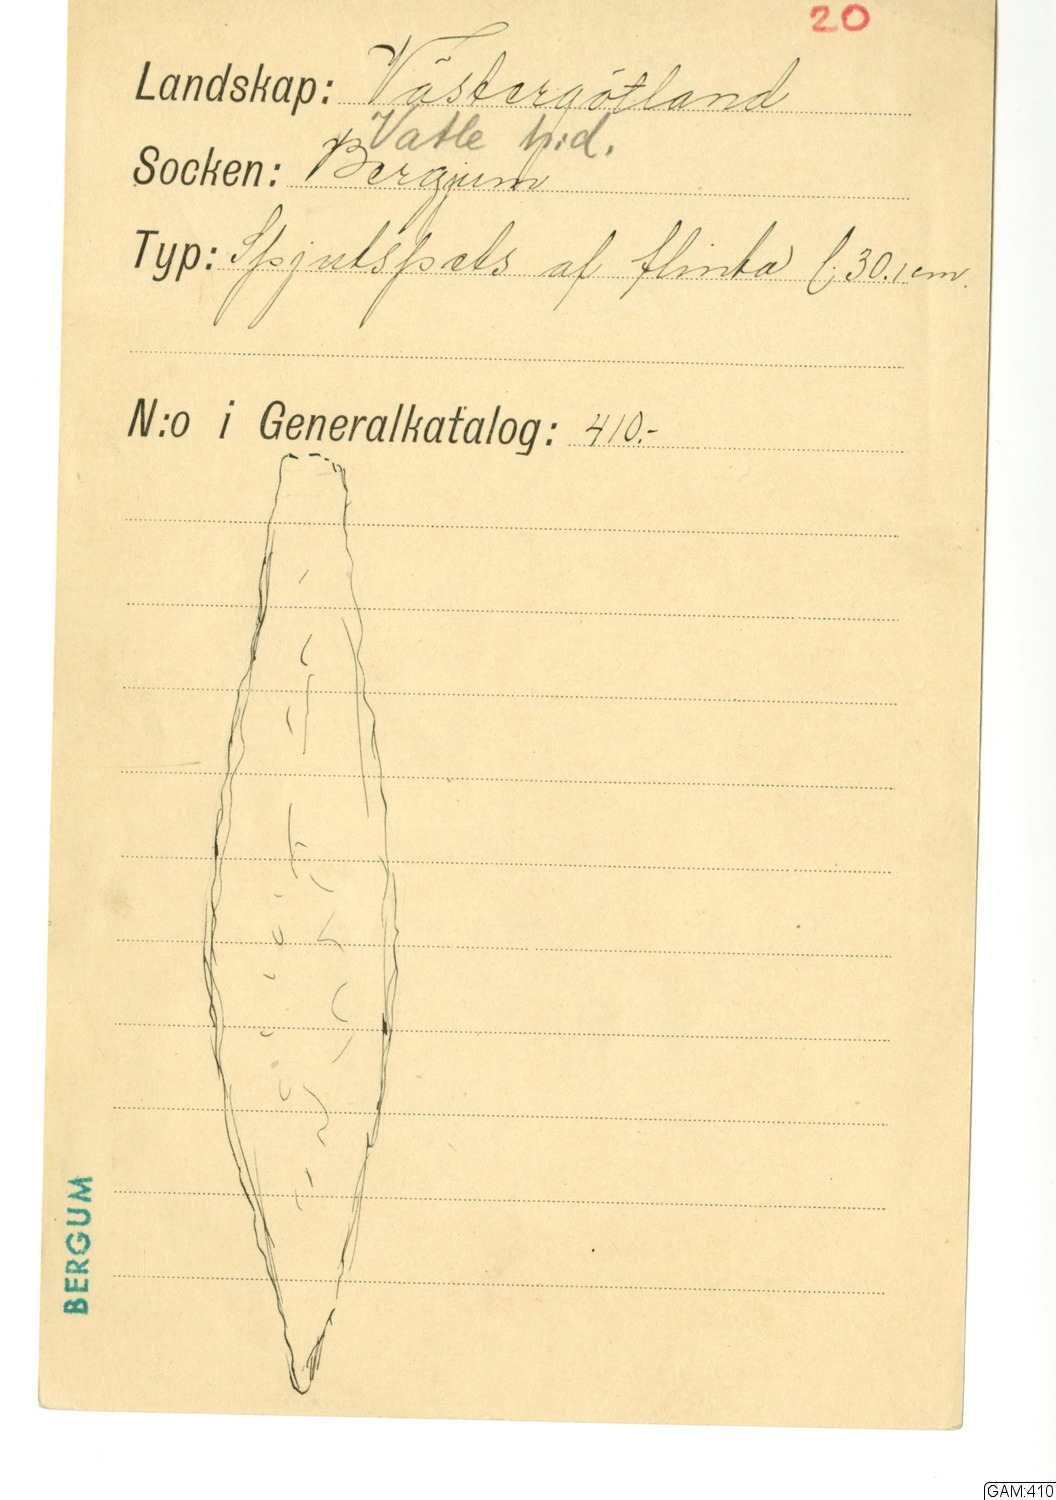 20
Landskap: Västergötland
Vatle h:d.
Socken: Bergjum
Typ: Spjutspets af flinta l; 30.1 cm.
N:o i Generalkatalog: 410.-
BERGUM
GAM:410